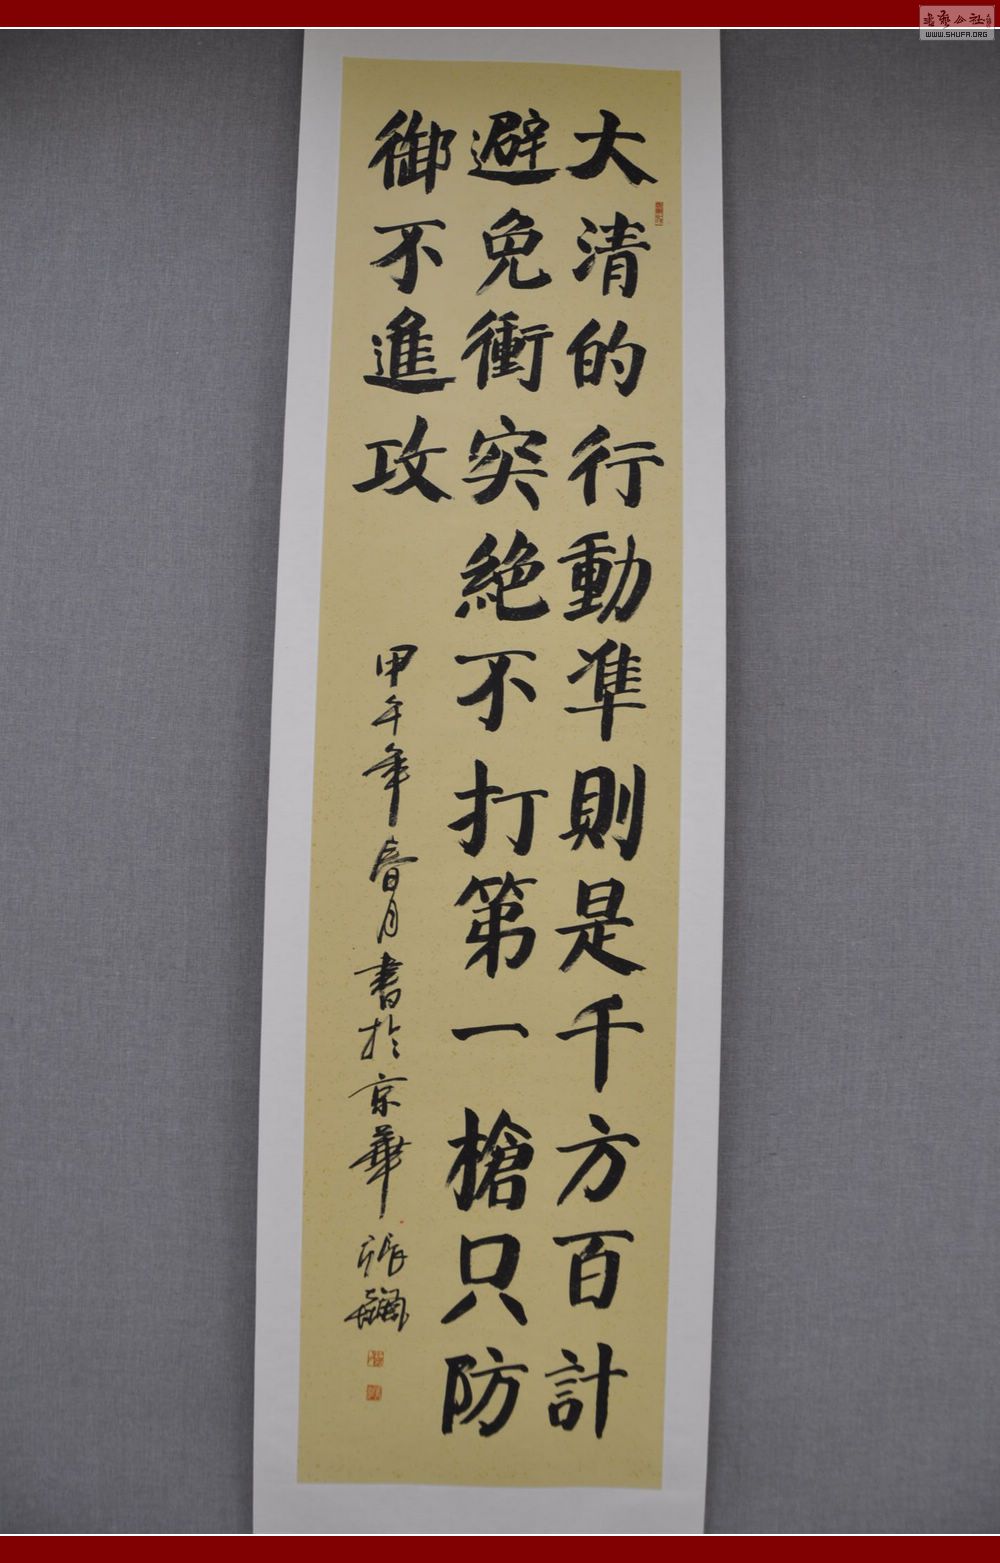 大清的行動準則是千方百計
避免衝突絶不打第一槍只防
御不進攻
甲午年春月書於京華 張
WWW.SHUFA.ORG